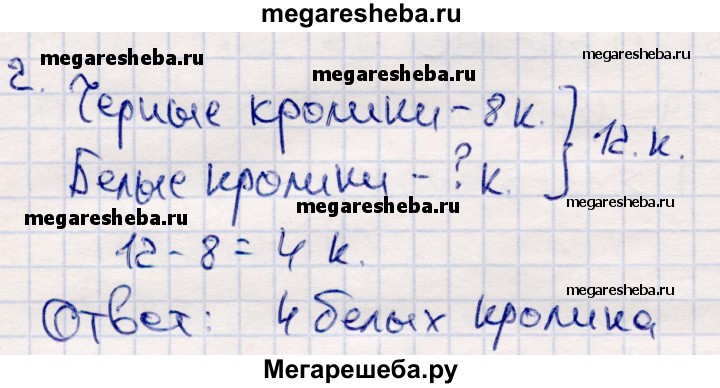 megaresheba.ru
megaresheba.ru
megaresheba.ru
megaresheba.ru
2.
Черные кролики - 8 к.
Белые кролики - ? к.
12. к.
megaresheba.ru
megaresheba.ru
megaresheba.ru
12 - 8 = 4 к.
megaresheba.ru
Ответ: 4 белых кролика
Мегарешеба.ру